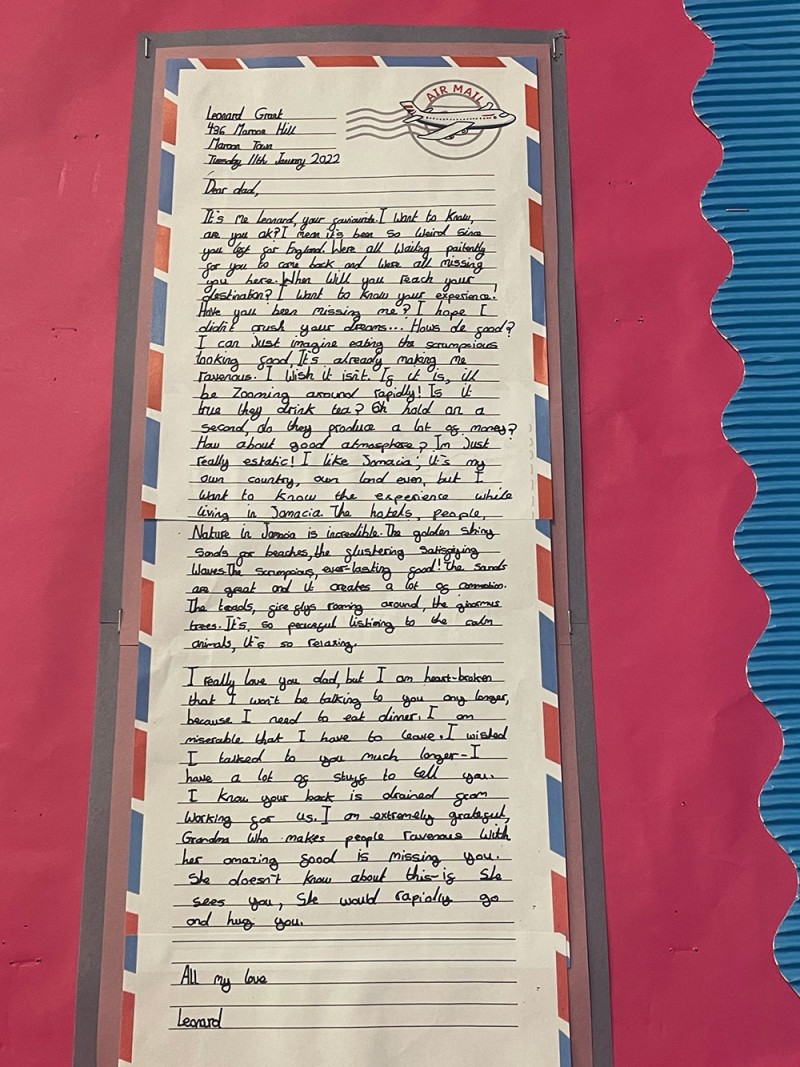 AIR MAIL
Leonard Grant
496 Maroon Hill
Maroon Town
Tuesday 11th January 2022
Dear dad,
It's me Leonard, your favourite. I Want to know,
are you ok? I mean it's been so weird since
you left for England. Were all waiting paitently
for you to come back and Were all missing
you here. When Will you reach your
destination? I want to know your experience.
Have you been missing me? I hope I
didn't crush your dreams... Hows de food?
I can Just imagine eating the scrumpsious
looking food, It's already making me
ravenous. I Wish it isn't. If it is, ill
be zooming around rapidly! Is it
true they drink tea? Oh hold on a
second, do they produce a lot of money?
How about good atmosphere? Im Just
really estatic! I like Jamacia; it's my
own country, own land even, but I
want to know the experience while
living in Jamacia. The hotels, people,
Nature in Jamacia is incredible. The golden shiny
sands for beaches, the glustering satisfying
Waves. The scrumpsious, ever-lasting food! The sands
are great and it creates a lot of commotion.
The toads, fire flys roaming around, the ginormus
trees. It's, so peaceful listining to the calm
animals, it's so relaxing.
I really love you dad, but I am heart-broken
that I won't be talking to you any longer,
because I need to eat dinner. I am
miserable that I have to leave. I wished
I talked to you much longer-I
have a lot of stuff to tell you.
I know your back is drained from
working for us. I am extremely grateful,
Grandma who makes people ravenous with
her amazing food is missing you.
She doesn't know about this-if she
sees you, she would rapidly go
and hug you.
All my love
Leonard